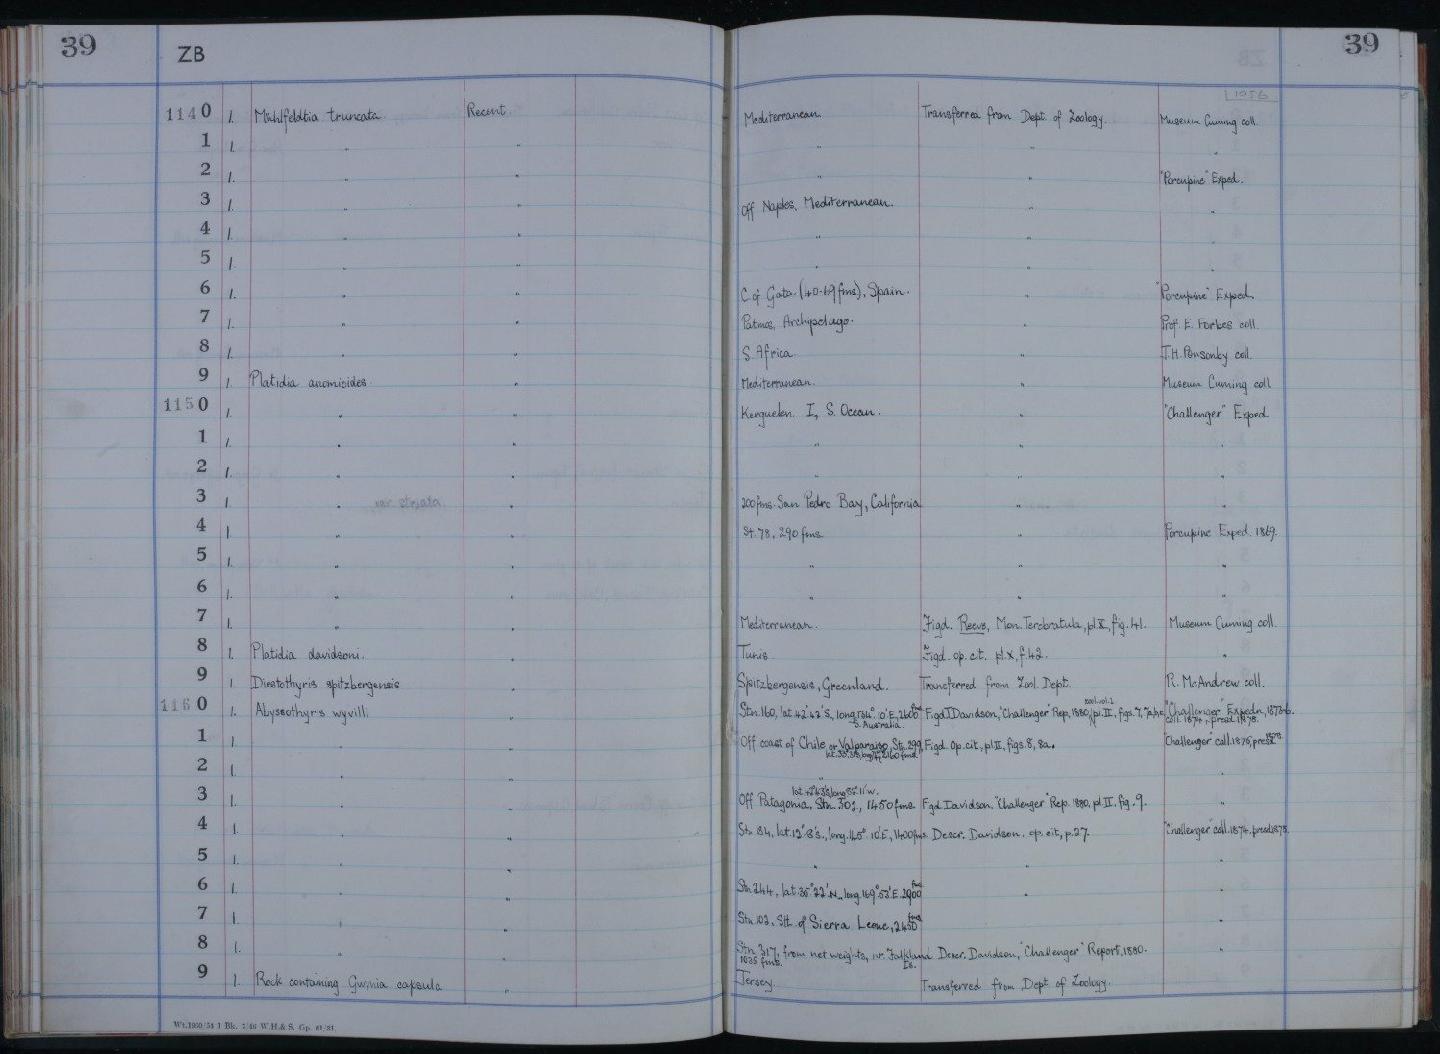 39 ZB 39
1956
1140 1. Mühlfeldtia truncata. Recent. Mediterranean. Transferred from Dept. of Zoology. Museum Cuming coll.
1 1. " " " " "
2 1. " " " " "Porcupine" Exped.
3 1. " " Off Naples, Mediterranean. "
4 1. " " " " "
5 1. " " " "
6 1. " " C. of Gata. (40-69 fms), Spain. " "Porcupine" Exped.
7 1. " " Patmos, Archipelago. " Prof. E. Forbes coll.
8 1. " " S. Africa " J.H. Ponsonby coll.
9 1. Platidia anomioides. " Mediterranean. " Museum Cuming coll
1150 1. " " Kerguelen I, S. Ocean. " "Challenger" Exped
1 1. " " " " "
2 1. " " " " "
3 1 var. striata " 200 fms. San Pedro Bay, California " "
4 1 " " St. 78, 290 fms. " Porcupine Exped. 1869.
5 1. " " " " "
6 1. " " " " "
7 1. " " Mediterranean. Figd. Reeve, Mon. Terebratula, pl. X, fig. 41. Museum Cuming coll.
8 1. Platidia davidsoni. Tunis Figd. op. cit. pl. X, f. 42. "
9 1. Diestothyris spitzbergensis " Spitzbergensis, Greenland. Transferred from Zool. Dept. R. McAndrew coll.
1160 1. Abyssothyris wyvilli " Stn. 160, lat. 42° 42' S, long. 134° 10' E, 2600 fms S. Australia. Figd. Davidson, "Challenger" Rep, 1880, zool. vol. 1 pl. II, figs. 7, "Challenger" Expedn, coll. 1874, presd. 1878.
1 1. " " Off coast of Chile or Valparaiso, St. 299, 2160 fms. Figd. Op. cit, pl II, figs. 8, 8a. "Challenger" coll. 1875, presd 1878.
2 1. " " " "
3 1. " " Off Patagonia, Stn. 302, 1450 fms. Fgd. Davidson, "Challenger" Rep. 1880, pl. II, fig. 9. "
4 1. " " Stn 84, lat. 12° 8' S., long. 145° 10' E, 1400 fms. Descr. Davidson. op. cit, p. 27. "Challenger" coll. 1874, presd 1878.
5 1. " " " "
6 1. " " Stn. 244, lat. 35° 22' N., long. 169° 53' E. 2900 fms " "
7 1. " " Stn. 102, Sth. of Sierra Leone, 2450 fms "
8 1. " " Stn. 317, from net weights, nr. Falkland Is. 1035 fms. Descr. Davidson, "Challenger" Report, 1880. "
9 1. Rock containing Gwynia capsula " Jersey. Transferred from Dept of Zoology.
Wt.1990/54 1 Bk. 7/46 W.H.& S. Gp. 61/31